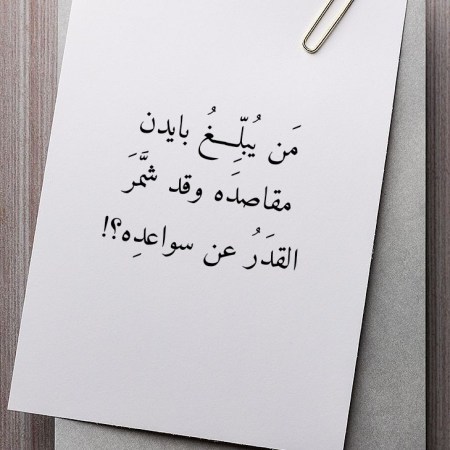 مَن يُبلِّــغُ بايدن
مقاصدَه وقد شمَّرَ
القدَرُ عن سواعدِه؟!